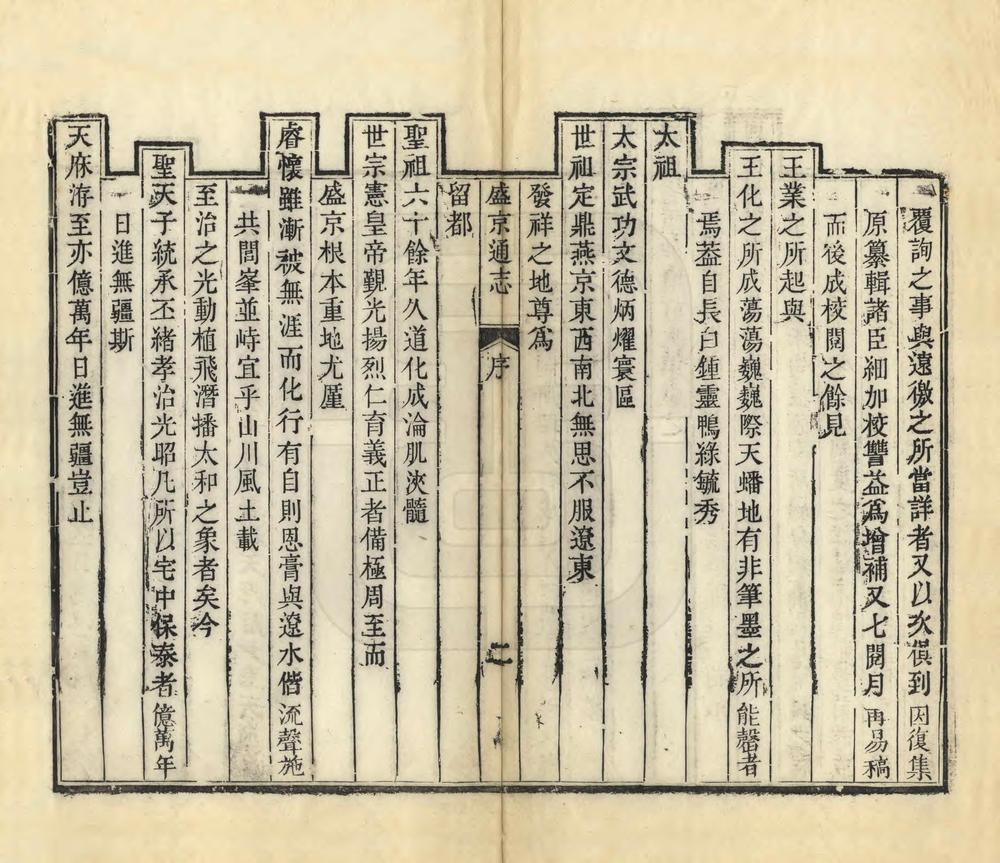 覆詢之事與遠徵之所當詳者又以次俱到因復集
原纂輯諸臣細加校讐益為增補又七閱月再易稿
而後成校閱之餘見
王業之所起與
王化之所成蕩蕩巍巍際天蟠地有非筆墨之所能罄者
焉葢自長白鍾靈鴨綠毓秀
太祖
太宗武功文德炳燿寰區
世祖定鼎燕京東西南北無思不服遼東
發祥之地尊為
盛京通志 序 二
留都
聖祖六十餘年久道化成淪肌浹髓
世宗憲皇帝覲光揚烈仁育義正者備極周至而
盛京根本重地尤廑
睿懷雖漸被無涯而化行有自則恩膏與遼水偕流聲施
共閭峯並峙宜乎山川風土載
至治之光動植飛潛播太和之象者矣今
聖天子統承丕緒孝治光昭凡所以宅中保泰者億萬年
日進無疆斯
天庥洊至亦億萬年日進無疆豈止